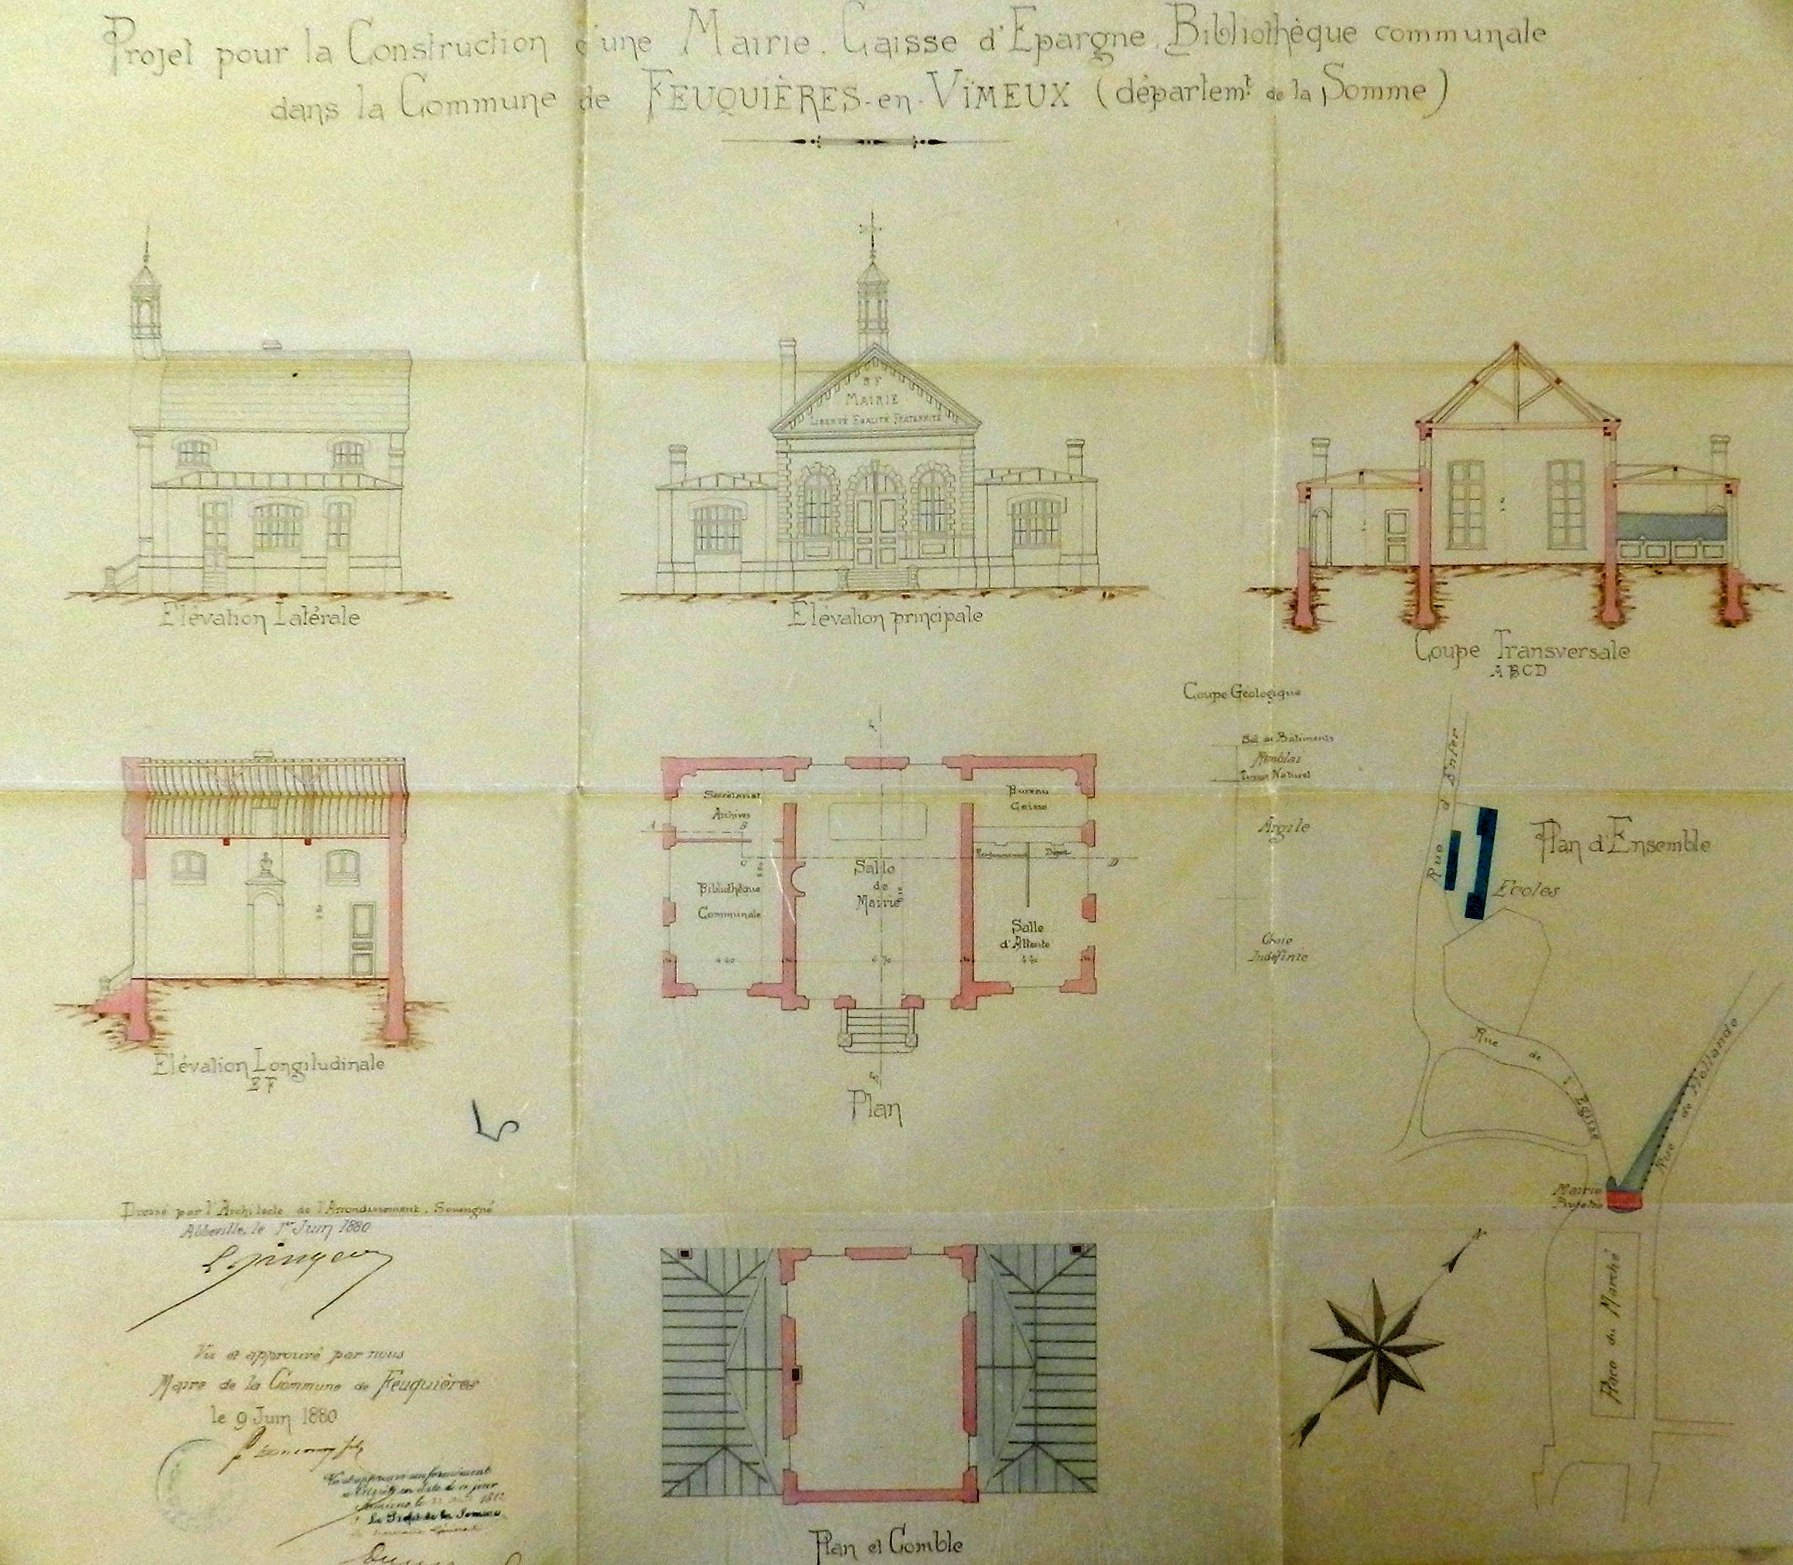 Projet pour la Construction d'une Mairie. Caisse d'Epargne, Bibliothèque communale
dans la Commune de FEUQUIÈRES-en-VIMEUX (départemt de la Somme)
R F
MAIRIE
LIBERTÉ EGALITÉ FRATERNITÉ
Elévation Latérale
Elévation principale
Coupe Transversale
ABCD
Coupe Géologique
Sol de Batiments
Remblai
Terrain Naturel
Argile
Craie
Indéfinie
Elévation Longitudinale
E F
Secrétariat
Archives
A
B
C
D
Bibliothèque
Communale
Salle
de
Mairie
Bureau
Caisse
Dépot
Salle
d'Attente
4 40
Plan
Rue d'Enfer
Plan d'Ensemble
Ecoles
Rue de l'Eglise
Rue de Hollande
Mairie
Projetée
Place du Marché
N
Dressé par l'Architecte de l'Arrondissement, Soussigné
Abbeville, le 1er Juin 1880
Vu et approuvé par nous
Maire de la Commune de Feuquières
le 9 Juin 1880
Vu et approuvé conformément
Le Préfet de la Somme
Plan et Comble